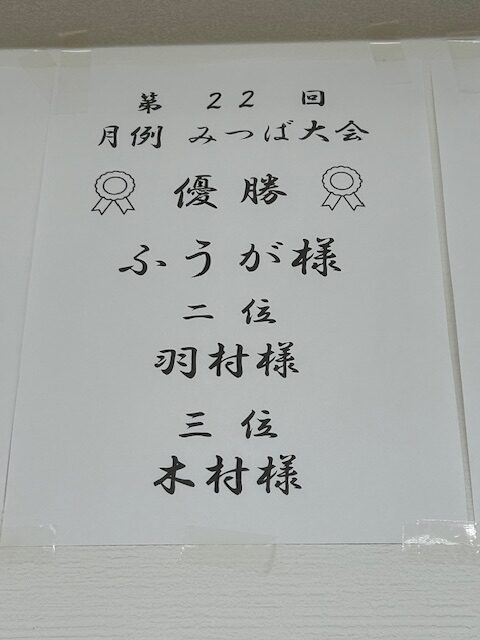 第 22 回
月例 みつば大会
優勝
ふうが様
二位
羽村様
三位
木村様